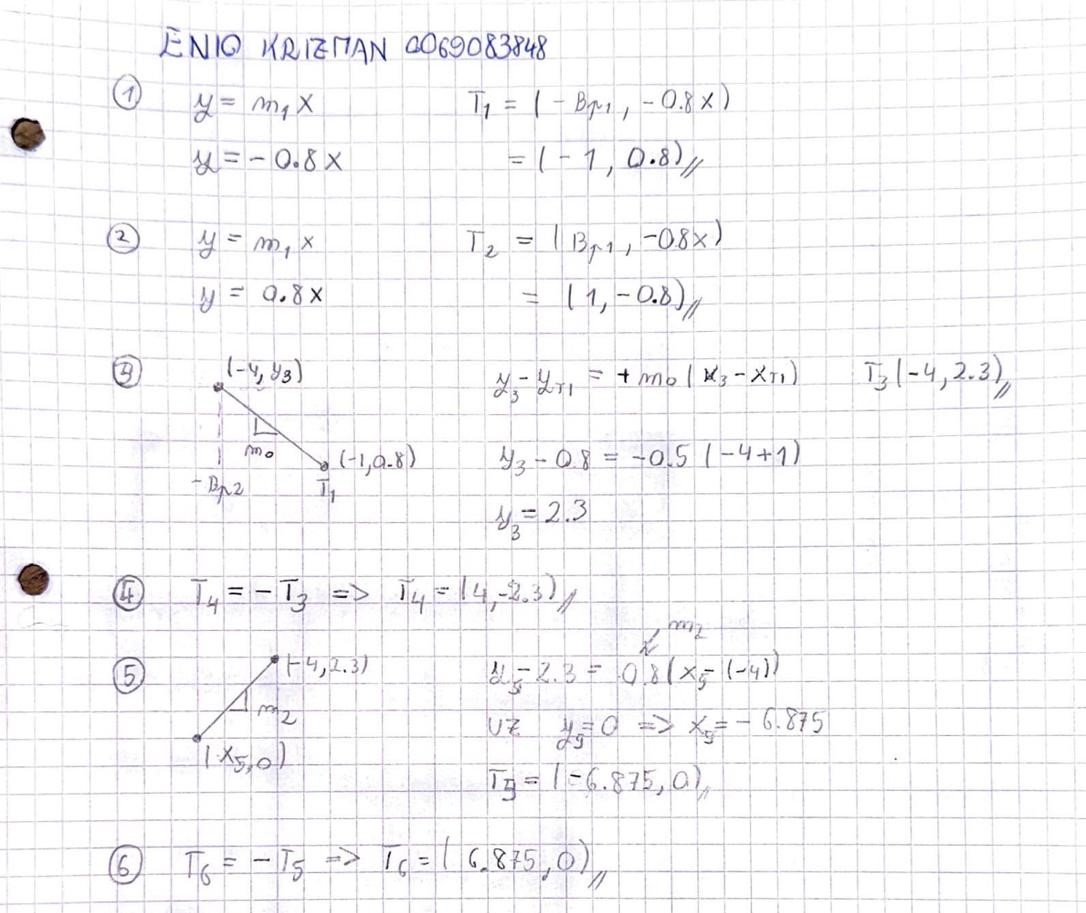 ENIO KRIZMAN 0069083848
① y = m₁x T₁ = (-Bp₁, -0.8x)
y = -0.8x = (-1, 0.8)//
② y = m₁x T₂ = (Bp₁, -0.8x)
y = 0.8x = (1, -0.8)//
③ (-4, y₃) y₃ - y_T₁ = + m₀ (x₃ - x_T₁) T₃(-4, 2.3)//
m₀ (-1, 0.8) y₃ - 0.8 = -0.5 (-4+1)
-Bp₂ T₁
y₃ = 2.3
④ T₄ = -T₃ => T₄ = (4, -2.3)//
m₂
⑤ (-4, 2.3) y₅ - 2.3 = 0.8(x₅ - (-4))
m₂ UZ y₅ = 0 => x₅ = -6.875
(-x₅, 0)
T₅ = (-6.875, 0)//
⑥ T₆ = -T₅ => T₆ = (6.875, 0)//